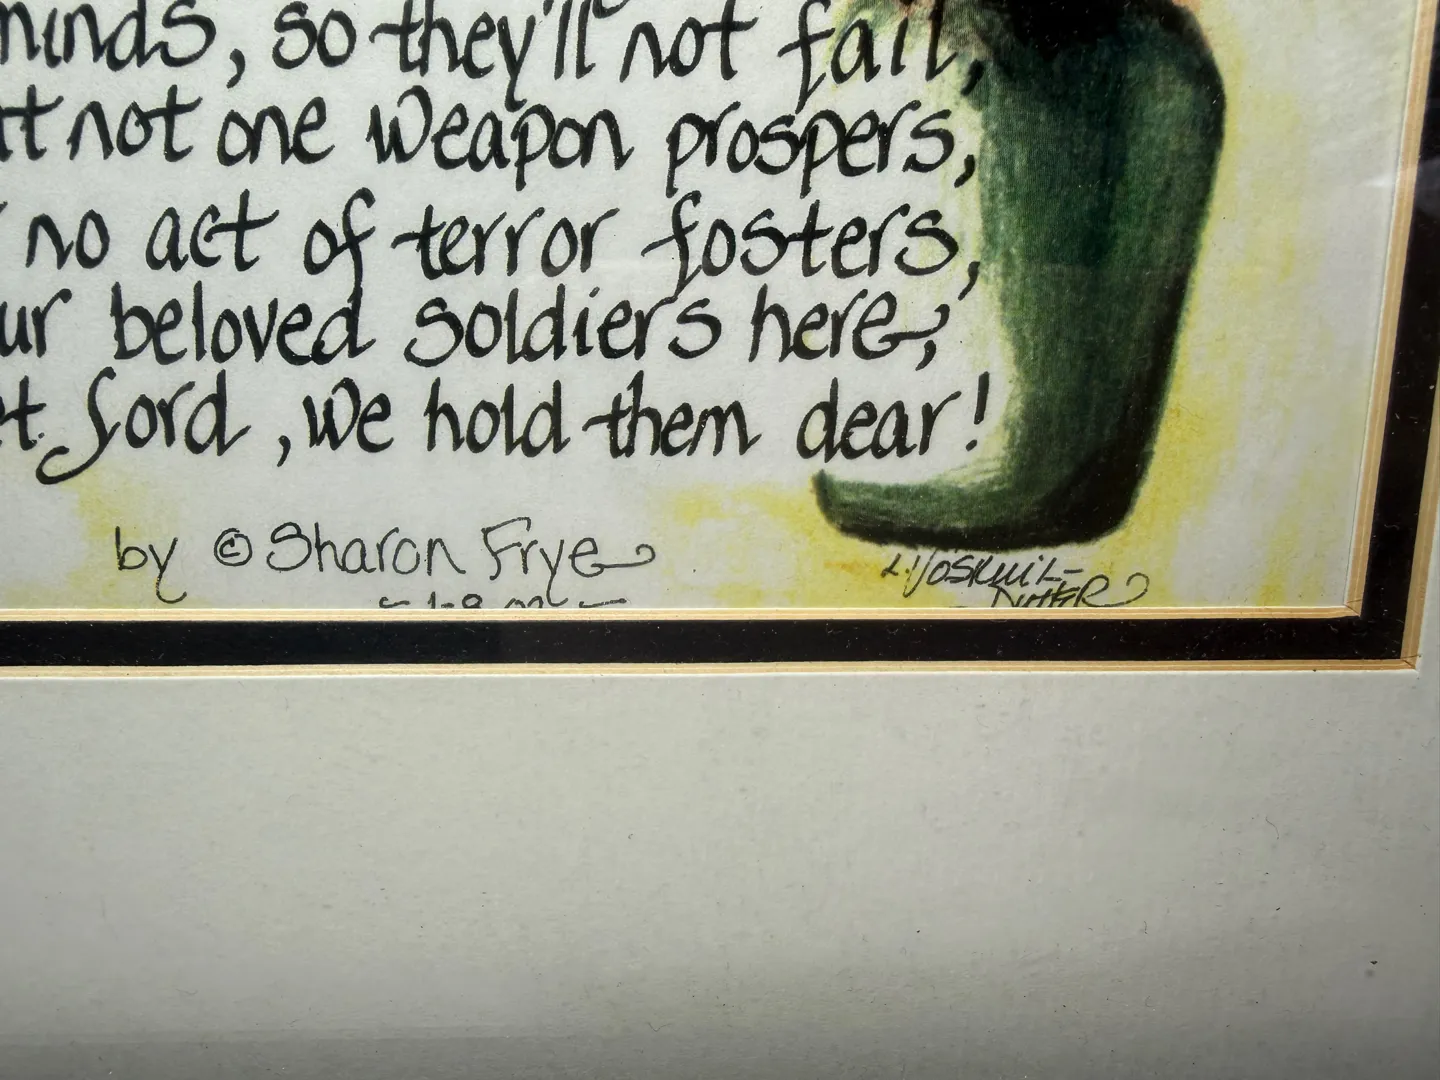 minds, so they'll not fail,
not one weapon prospers,
no act of terror fosters,
beloved soldiers here,
Lord, we hold them dear!
by © Sharon Frye